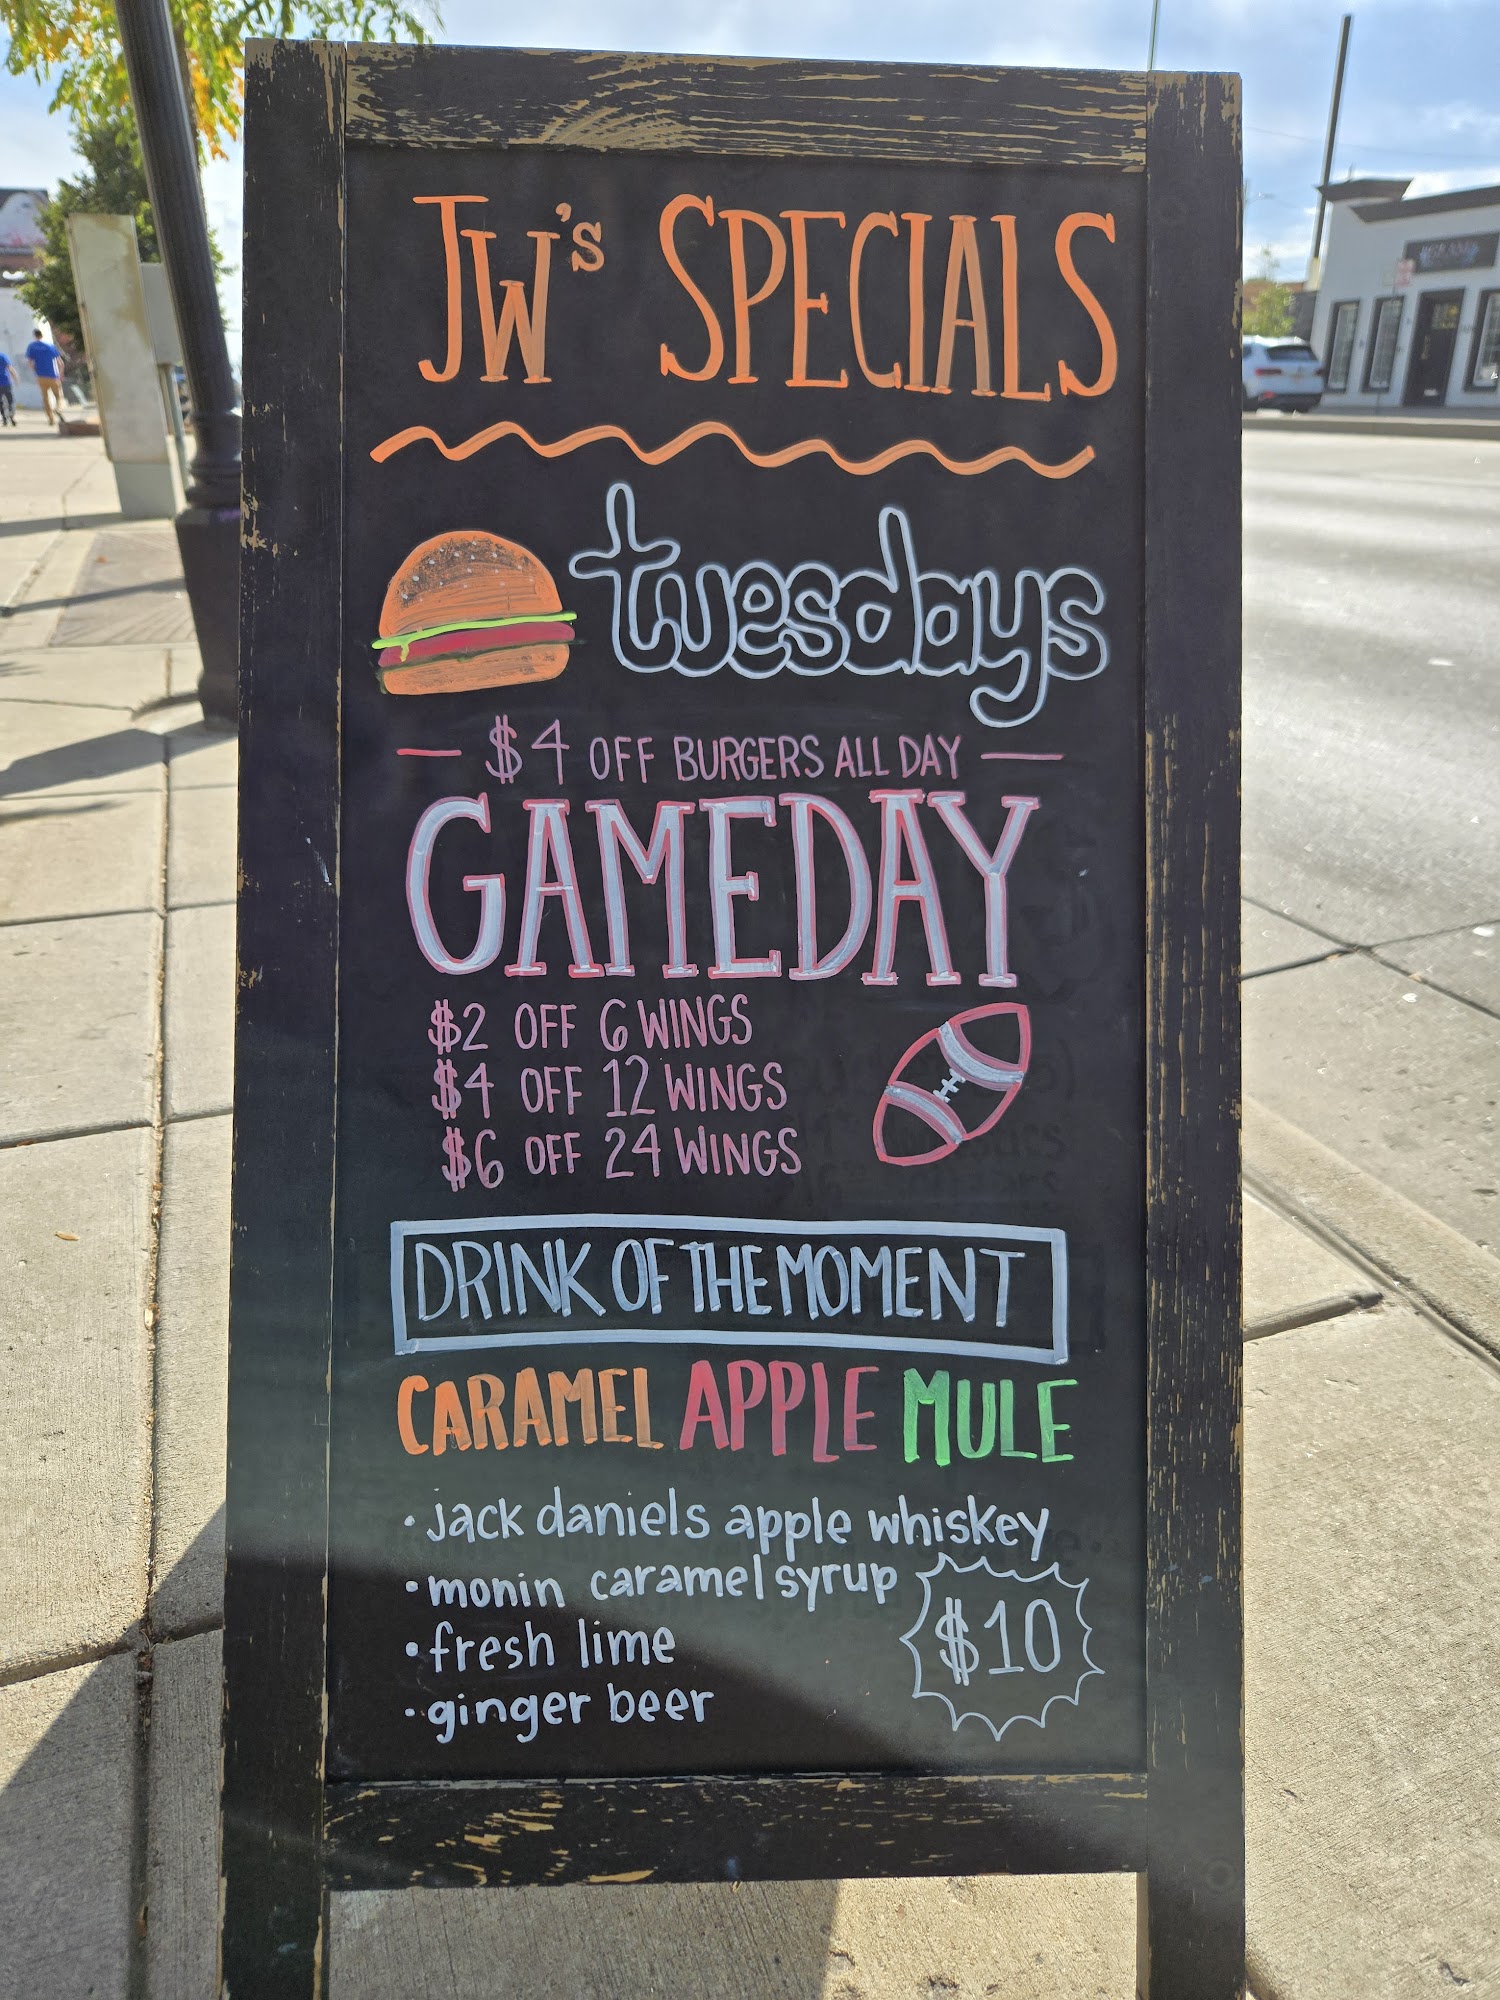 JW's SPECIALS
tuesdays
$4 OFF BURGERS ALL DAY
GAMEDAY
$2 OFF 6 WINGS
$4 OFF 12 WINGS
$6 OFF 24 WINGS
DRINK OF THE MOMENT
CARAMEL APPLE MULE
• jack daniels apple whiskey
• monin caramel syrup
• fresh lime
• ginger beer
$10